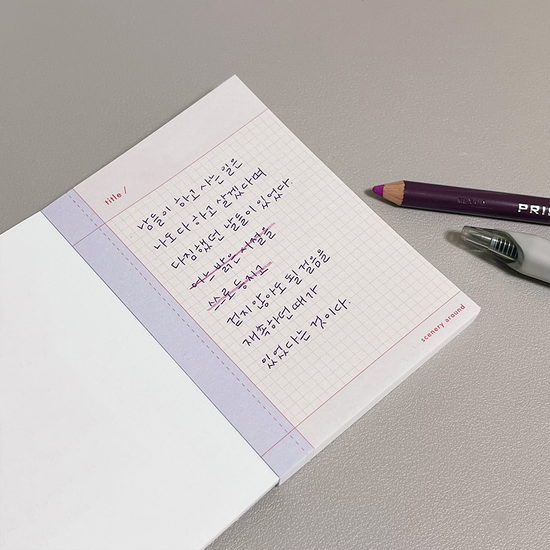 title /
남들이 하고 사는 일은
나도 다 하고 살겠다며
다짐했던 날들이 있었다.
어느 밝은 시절을
스스로 등지고
걷지 않아도 될 걸음을
재촉하던 때가
있었다는 것이다.
scenery around
PRIS